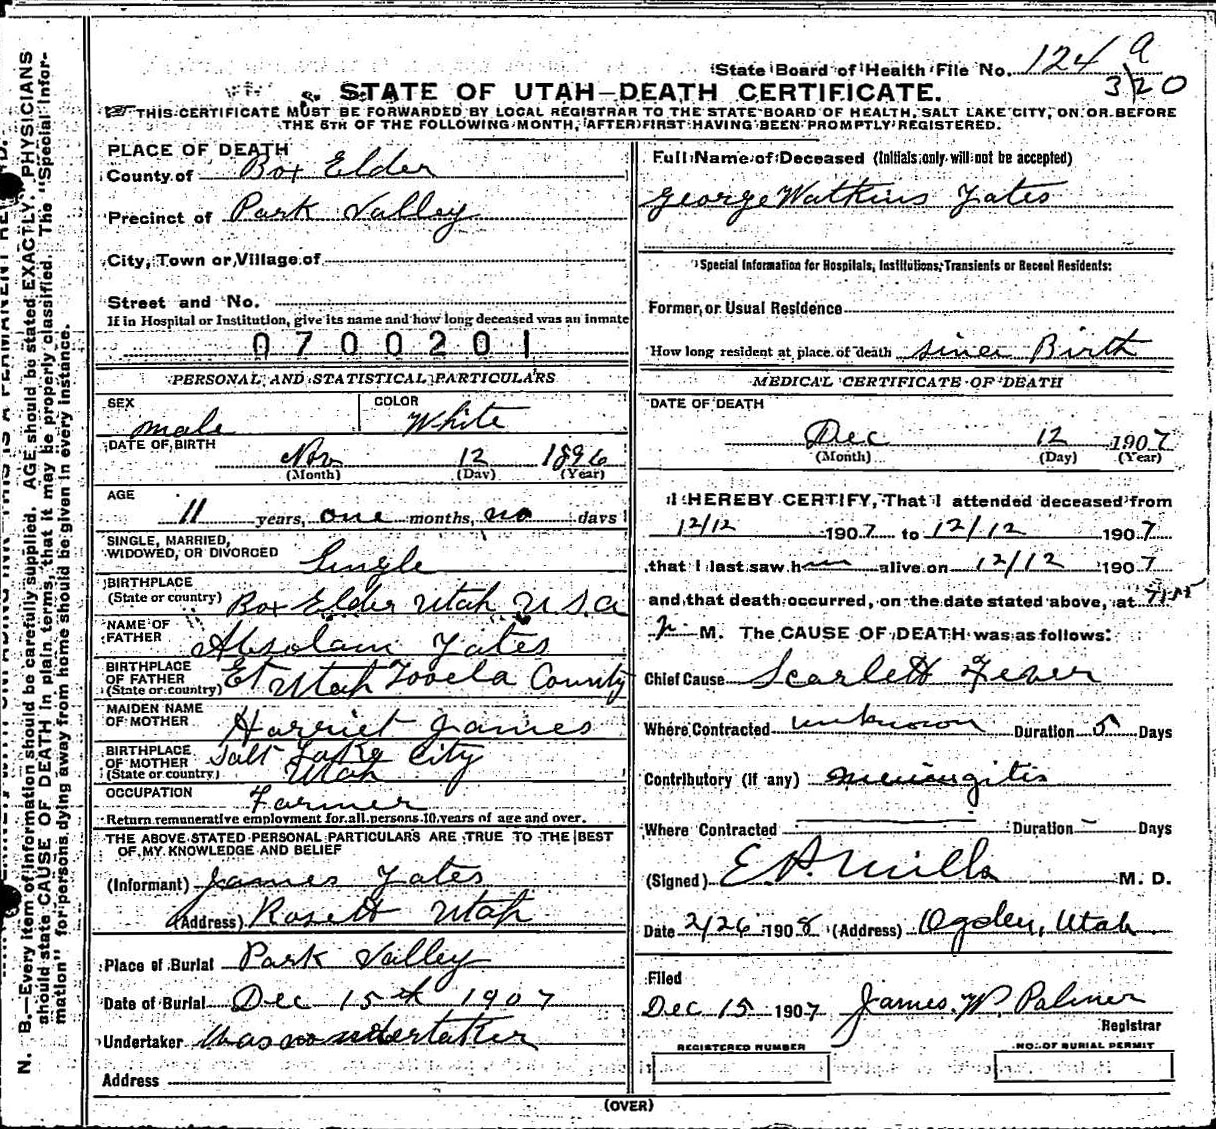 State Board of Health File No. 124 a
320
STATE OF UTAH—DEATH CERTIFICATE.
THIS CERTIFICATE MUST BE FORWARDED BY LOCAL REGISTRAR TO THE STATE BOARD OF HEALTH, SALT LAKE CITY, ON OR BEFORE
THE 5TH OF THE FOLLOWING MONTH, AFTER FIRST HAVING BEEN PROMPTLY REGISTERED.
PLACE OF DEATH
County of Box Elder
Precinct of Park Valley
City, Town or Village of
Street and No.
If in Hospital or Institution, give its name and how long deceased was an inmate
0700201
PERSONAL AND STATISTICAL PARTICULARS
SEX male COLOR White
DATE OF BIRTH Nov 12 1896
(Month) (Day) (Year)
AGE
11 years, one months, no days
SINGLE, MARRIED,
WIDOWED, OR DIVORCED Single
BIRTHPLACE
(State or country) Box Elder Utah U.S.a
NAME OF
FATHER Absolam Yates
BIRTHPLACE
OF FATHER
(State or country) Et Utah Tooela County
MAIDEN NAME
OF MOTHER Harriet James
BIRTHPLACE
OF MOTHER
(State or country) Salt Lake City
Utah
OCCUPATION
Farmer
Return remunerative employment for all persons 10 years of age and over.
THE ABOVE STATED PERSONAL PARTICULARS ARE TRUE TO THE BEST
OF MY KNOWLEDGE AND BELIEF
(Informant) James Yates
(Address) Rosett Utah
Place of Burial Park Valley
Date of Burial Dec 15th 1907
Undertaker Was no undertaker
Address
Full Name of Deceased (Initials only will not be accepted)
George Watkins Yates
Special Information for Hospitals, Institutions, Transients or Recent Residents:
Former or Usual Residence
How long resident at place of death since Birth
MEDICAL CERTIFICATE OF DEATH
DATE OF DEATH
Dec 12 1907
(Month) (Day) (Year)
I HEREBY CERTIFY, That I attended deceased from
12/12 1907 to 12/12 1907
that I last saw him alive on 12/12 1907
and that death occurred, on the date stated above, at
P M. The CAUSE OF DEATH was as follows:
Chief Cause Scarlett Fever
Where Contracted unknown Duration 5 Days
Contributory (if any) meningitis
Where Contracted Duration – Days
(Signed) E. P. Mills M. D.
Date 2/26 1908 (Address) Ogden, Utah
Filed
Dec 15 1907 James. W. Palmer
Registrar
REGISTERED NUMBER NO. OF BURIAL PERMIT
(OVER)
N. B.—Every item of information should be carefully supplied. AGE should be stated EXACTLY. PHYSICIANS
should state CAUSE OF DEATH in plain terms, that it may be properly classified. The "Special Infor-
mation" for persons dying away from home should be given in every instance.